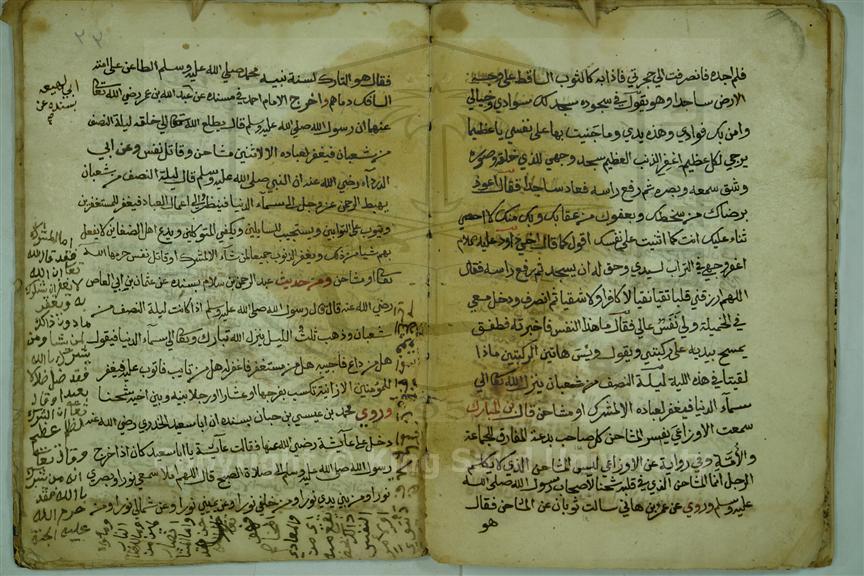 فلم اجده فانصرفت الى حجرتي فاذا به كالثوب الساقط على وجه
الارض ساجدا وهو يقول في سجوده سجد لك سوادي وخيالي
وامن بك فوادي وهذه يدي وما جنيت بها على نفسي يا عظيما
يرجى لكل عظيم اغفر الذنب العظيم سجد وجهي للذي خلقه وصوره
وشق سمعه وبصره ثم رفع راسه فعاد ساجدا فقال اعوذ
برضاك من سخطك وبعفوك من عقابك وبك منك لا احصي
ثناء عليك انت كما اثنيت على نفسك اقول كما قال اخي داود عليه السلام
اعفر وجهي في التراب لسيدي وحق له ان يسجد ثم رفع راسه فقال
اللهم ارزقني قلبا تقيا نقيا لا كافرا ولا شقيا ثم انصرف ودخل معي
في الخميلة ولي نفس عالي فقال ما هذا النفس فاخبرته فطفق
يمسح بيديه على ركبتي ويقول ويس هاتين الركبتين ماذا
لقيتا في هذه الليلة ليلة النصف من شعبان ينزل الله تعالى الى
سماء الدنيا فيغفر لعباده الا لمشرك او مشاحن قال بن المبارك
سمعت الاوزاعي يفسر المشاحن كل صاحب بدعة المفارق للجماعة
والأمة وفي رواية عن الاوزاعي ليس المشاحن الذي لا يكلم
الرجل انما المشاحن الذي في قلبه شحنا لاصحاب رسول الله صلى الله
عليه وسلم وروي عن عمر بن هاني سالت ثوبان عن المشاحن فقال
هو
٢٢
فقال هو التارك لسنة نبيه محمد صلى الله عليه وسلم الطاعن على امته
السافك دماهم واخرج الامام احمد في مسنده عن عبدالله بن عمر رضي الله تعالى
عنهما ان رسول الله صلى الله عليه وسلم قال يطلع الله تعالى الى خلقه ليلة النصف
من شعبان فيغفر لعباده الا لاثنين مشاحن وقاتل نفس وعن ابي
الدرداء رضي الله عنه ان النبي صلى الله عليه وسلم قال ليلة النصف من شعبان
يهبط الرحمن عز وجل الى سماء الدنيا فينظر الى اعمال العباد فيغفر للمستغفرين
ويتوب على التوابين ويستجيب للسايلين ويكفي المتوكلين ويدع اهل الضغاين لا يفعل
بهم شيا من ذلك ويغفر الذنوب جميعا لمن شاء الا لمشرك او قاتل نفس حرمها الله
تعالى او مشاحن ومن حديث عبد الرحمن بن سلام بسنده عن عثمان بن ابي العاص
رضي الله عنه قال قال رسول الله صلى الله عليه وسلم اذا كانت ليلة النصف من
شعبان وذهب ثلث الليل ينزل الله تبارك وتعالى الى سماء الدنيا فيقول
هل من داع فاجيبه هل من مستغفر فاغفر له هل من تايب فاتوب عليه فيغفر
للمؤمنين الا زانية تكسب بفرجها او عشارا او رجلا بينه وبين اخيه شحنا
وروي محمد بن عيسى بن حبان بسنده ان ابا سعيد الخدري رضي الله عنه
دخل على عائشة رضي الله عنها فقالت عائشة يا ابا سعيد كان اذا خرج
رسول الله صلى الله عليه وسلم الى صلاة الصبح قال اللهم املا سمعي نورا وبصري
نورا ومن بين يدي نورا ومن خلفي نورا وعن يميني نورا وعن شمالي نورا ومن
ابي لهيعه
بسنده عن
اما المشرك
فقد قال الله
تعالى ان الله
لا يغفر ان يشرك
به ويغفر
ما دون ذلك
لمن يشا ومن
يشرك بالله
فقد ضل ضلالا
بعيدا وقال
تعالى ان الشرك
لظلم عظيم
وقال تعالى
انه من يشرك
بالله فقد
حرم الله
عليه الجنة